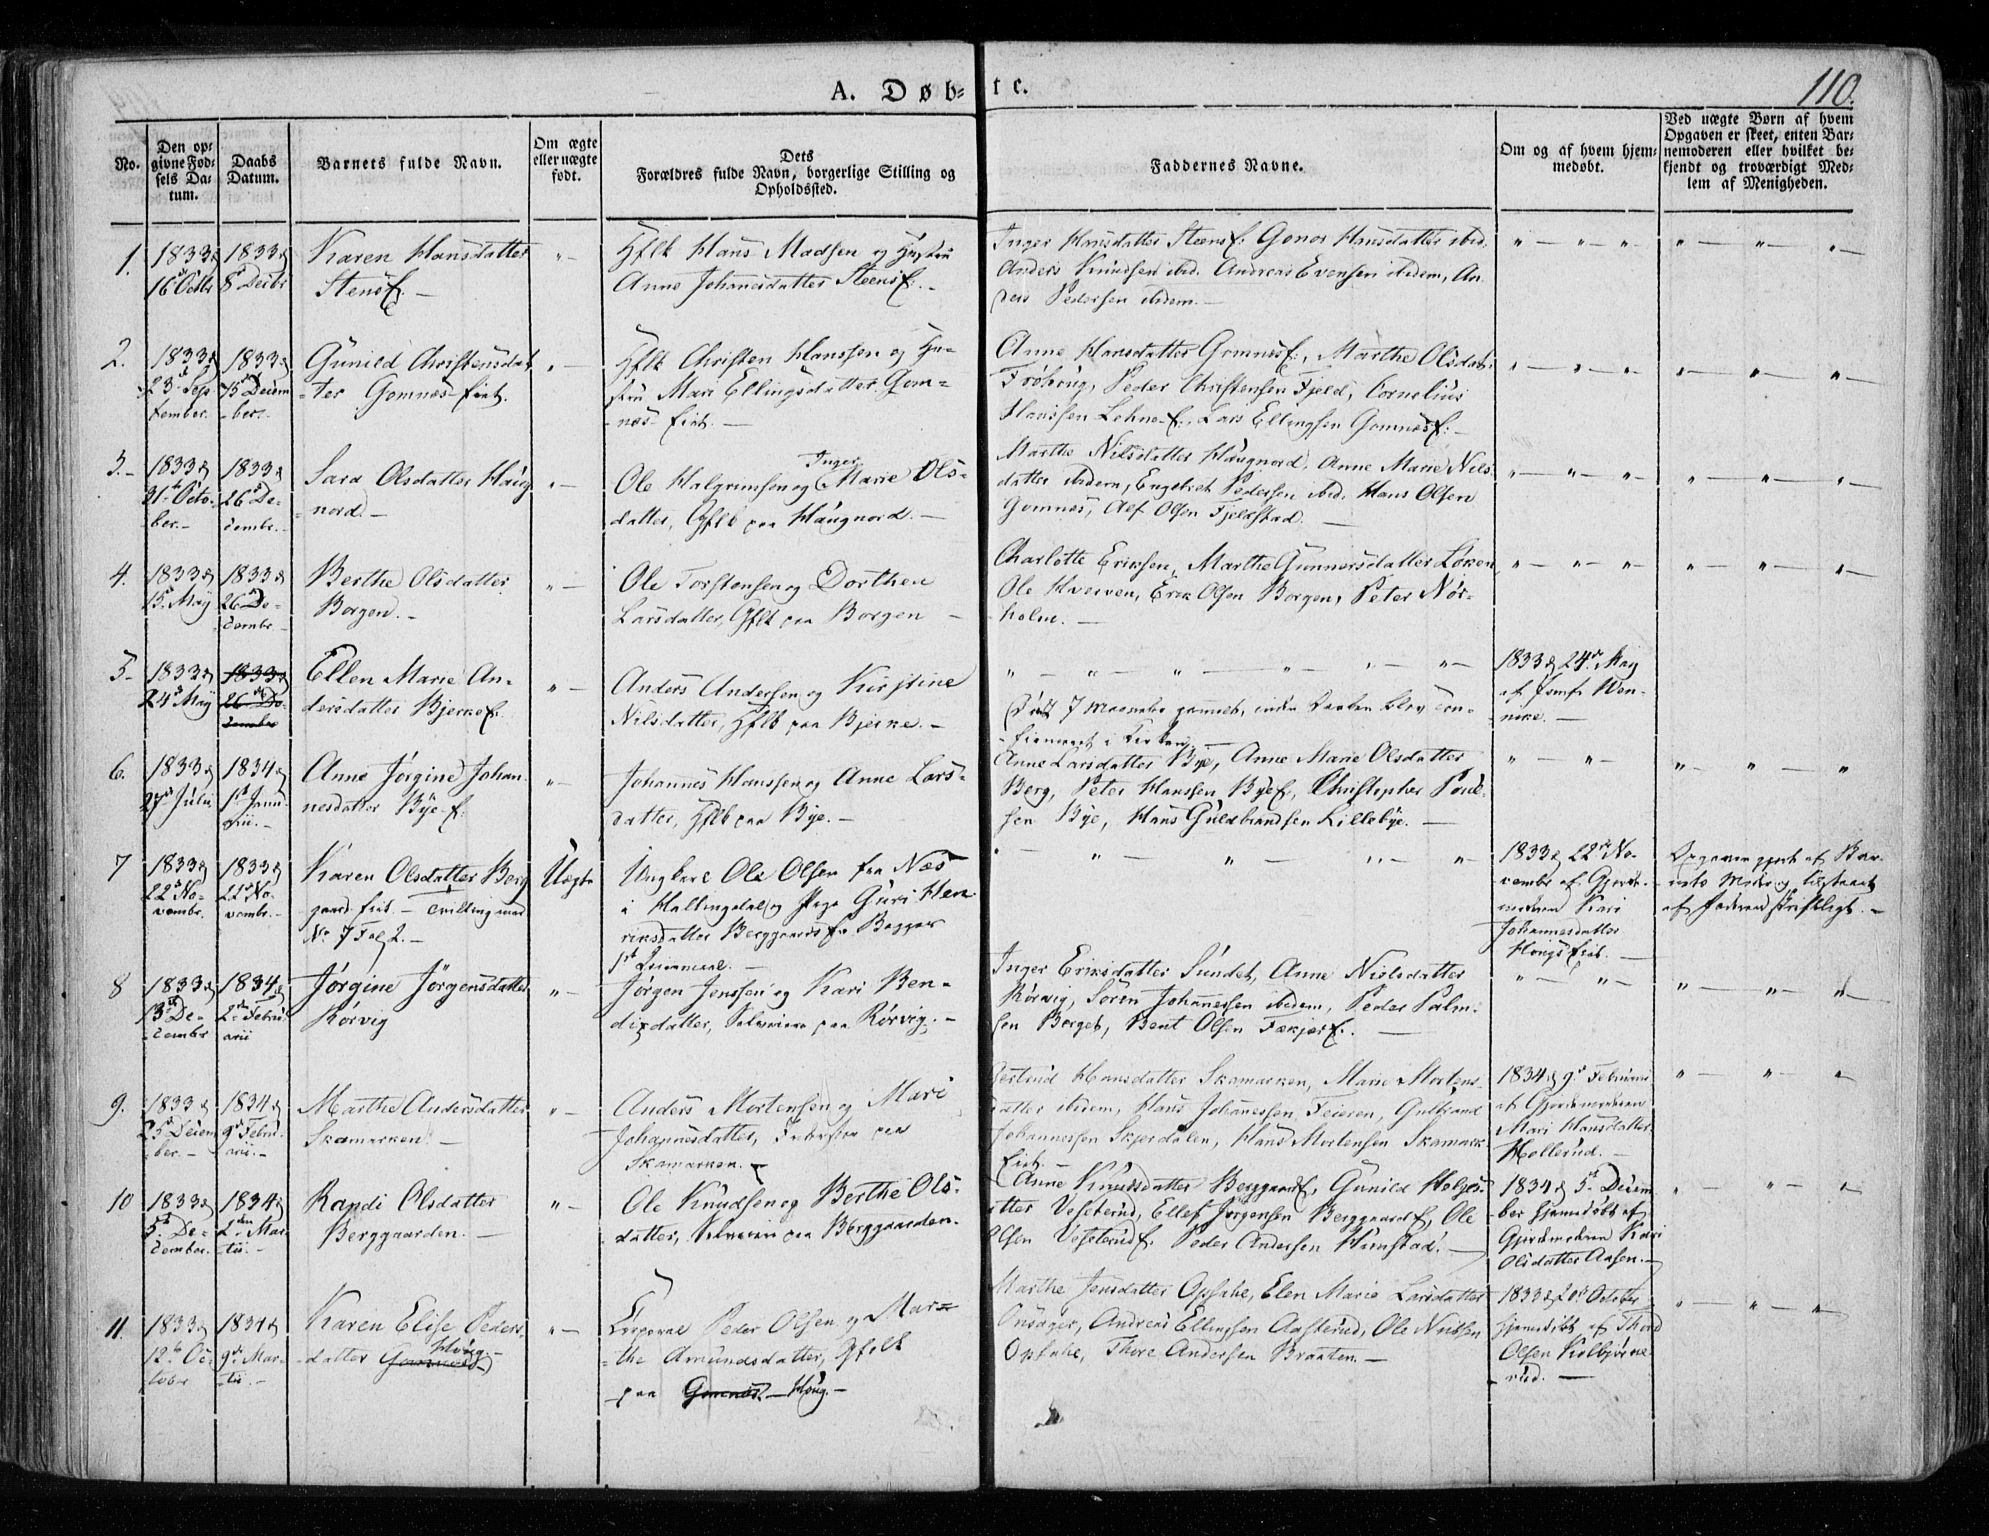 A. Døb-te.
110.
No.
Den op-
givne Fød-
sels Da-
tum.
Daabs
Datum.
Barnets fulde Navn.
Om ægte
eller uægte
født.
Dets
Forældres fulde Navn, borgerlige Stilling og
Opholdssted.
Faddernes Navne.
Om og af hvem hjem-
medøbt.
Ved uægte Børn af hvem
Opgaven er skeet, enten Bar-
nemoderen eller hvilket be-
kjendt og troværdigt Med-
lem af Menigheden.
1.
1833
16 Octbr
1833
8 Decbr
Karen Hansdatter
Hans Madsen og Hustru
Anne Johannesdatter
Inger Hansdatter
Hansdatter ibid.
Anders Knudsen ibid. Andreas Evensen ibidem, An-
ders Pedersen ibidem.
2.
1833
23 Sep-
tember.
1833
15 Decem-
ber.
Gunild Christensdat-
ter Gomnes-Eiet.
Christen Hanssen og Hu-
stru Mari Ellingsdatter Gom-
nes-Eiet.
Anne Hansdatter
Marthe Olsdat.
Peder Christensen Fjeld, Cornelius
Hanssen
Lars Ellingsen
3.
1833
31 Octo-
ber.
1833
26 De-
cembr.
Sara Olsdatter Haug-
nord.
Inger
Ole Halgrimsen og Marie Ols-
datter, Gflk paa Haugnord.
Marthe Nilsdatter Haugnord, Anne Marie Nils-
datter ibidem, Engebret Pedersen ibid. Hans Olsen
Gomnes, Olsen Fjeldstad.
4.
1833
15 May
1833
26 De-
cembr
Berthe Olsdatter
Borgen.
Ole Torstensen og Dorthea
Larsdatter, Gflk paa Borgen
Charlotte Eriksen, Marthe Gunnersdatter Løken
Ole Hverven, Erik Olsen Borgen, Peter Nor-
holm.
5
1833
24 May
1833
26 De-
cember
Ellen Marie An-
dersdatter
Anders Andersen og Kirstine
Nilsdatter, Hflk paa Bjerke.
Død 7 Maaneder gammel, inden Daaben blev con-
firmeret i Kirken
1833 24 May
af Jomfr Wen-
6.
1833
27 Julii
1834
1 Janu-
arii.
Anne Jørgine Johan-
nesdatter
Johannes Hanssen og Anne Lars-
datter, Hflk paa Bye.
Anne Larsdatter Bye, Anne Marie Olsdatter
Berg, Peter Hanssen
Christopher Poul-
sen Bye, Hans Guldbrandsen Lillebye.
7
1833
22 No-
vembr.
1833
22 No-
vembr.
Karen Olsdatter Berg-
gaards Eiet. Tvilling med
No 7 Fol 2.
Uægte
Ungkarl Ole Olsen fra Næs
i Hallingdal og Pige Guri Hen-
riksdatter
Begges
1st Leiermaal.
1833 22 No-
vembr af Gjorde-
moderen Kari
Johannesdatter
Opgaven gjort af Bar-
nets Moder og tilstaaet
af Faderen skriftligt.
8
1833
13 De-
cember
1834
2 Febru-
arii
Jørgine Jørgensdatter
Rørvig
Jørgen Jenssen og Kari Ben-
dixdatter, Selveiere paa Rørvig.
Inger Eriksdatter Sundet, Anne Nielsdatter
Rørvig, Søren Johannessen ibidem, Peder Palm-
sen Berget, Bent Olsen
9.
1833
25 Decem-
ber.
1834
9 Febru-
arii.
Marthe Andersdatter
Skamarken.
Anders Mortensen og Mari
Johannesdatter,
paa
Skamarken.
Gertrud Hansdatter Skamarken, Marie Mortens-
datter ibidem, Hans Johannessen Feieren, Gulbrand
Johannessen Skjerdalen, Hans Mortensen Skamark-
Eiet.
1834 9 Februarii
af Gjordemoderen
Mari Hansdatter
Hollerud.
10
1833
5 De-
cember.
1834
2 Mar-
tii.
Randi Olsdatter
Berggaarden.
Ole Knudsen og Berthe Ols-
datter, Selveiere paa Berggaarden.
Anne Knudsdatter
Gunild Helges-
datter Veseterud, Ellef Jørgensen
Ole
Olsen
Peder Andersen
1834 5 Decem-
ber hjemmedøbt af
Gjordemoderen Kari
Olsdatter Aasen.
11
1833
12 Oc-
tober
1834
9 Mar-
tii.
Karen Elise Peders-
datter Gomnes
Houg
Corporal Peder Olsen og Mar-
the Amundsdatter, Gfolk
paa Gomnes. Houg.
Marthe Jensdatter Opsahe, Elen Marie Larsdatter
Onsager, Andreas Ellingsen Aasterud, Ole Nilsen
Opsahe, Thore Andersen Braaten.
1833 20 October
hjemmedøbt af Thord
Olsen Kolbjørns-
rud.